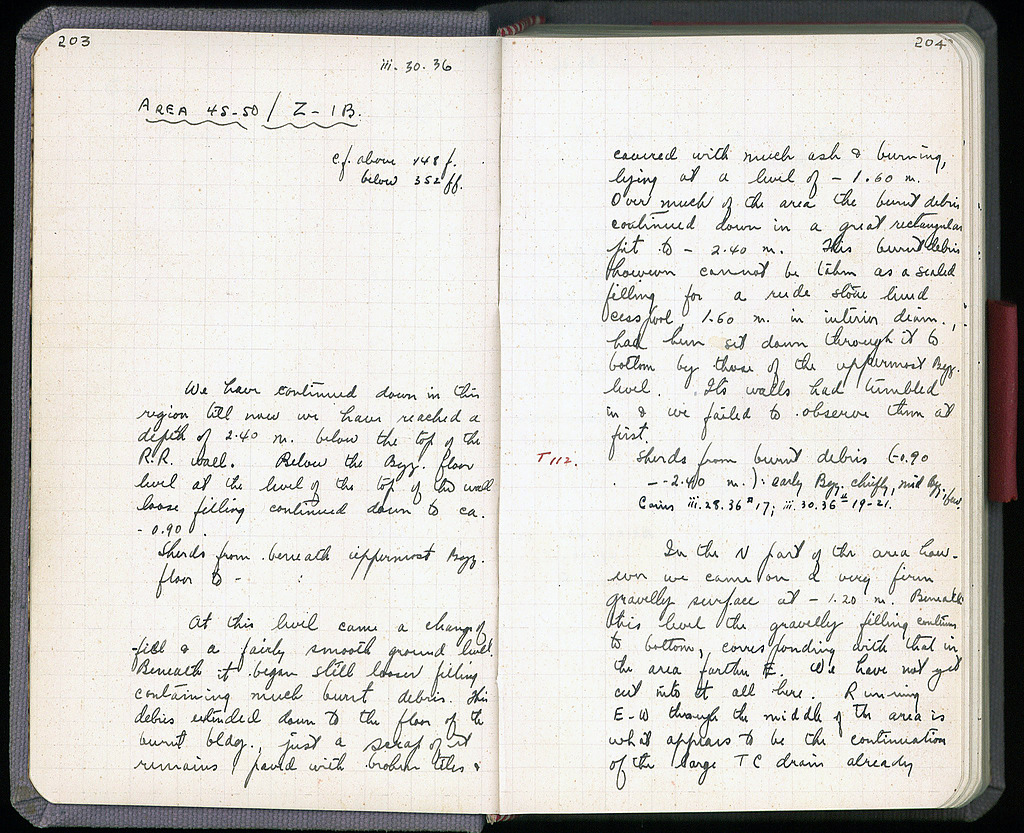 203
iii. 30. 36
AREA 45-50 / Z - 1B.
cf. above 148 f.
below 352 ff.
We have continued down in this
region till now we have reached a
depth of 2.40 m. below the top of the
R.R. wall. Below the Byz. floor
level at the level of the top of the wall
loose filling continued down to ca.
- 0.90.
Sherds from beneath uppermost Byz.
floor to - :
At this level came a change of
fill & a fairly smooth ground level.
Beneath it began still looser filling
containing much burnt debris. This
debris extended down to the floor of the
burnt bldg., just a scrap of it
remains, paved with broken tiles &
204
covered with much ash & burning,
lying at a level of - 1.60 m.
Over much of the area the burnt debris
continued down in a great rectangular
pit to - 2.40 m. This burnt debris
however cannot be taken as a sealed
filling for a rude stone lined
cesspool 1.60 m. in interior diam.,
had been set down through it to
bottom by those of the uppermost Byz.
level. Its walls had tumbled
in & we failed to observe them at
first.
T 112.
Sherds from burnt debris (-0.90
- -2.40 m.): early Byz. chiefly, mid Byz. few.
Coins iii.28.36 #17; iii.30.36 #19-21.
In the N part of the area how-
ever we came on a very firm
gravelly surface at - 1.20 m. Beneath
this level the gravelly filling continues
to bottom, corresponding with that in
the area further E. We have not yet
cut into it all here. Running
E-W through the middle of the area is
what appears to be the continuation
of the large TC drain already